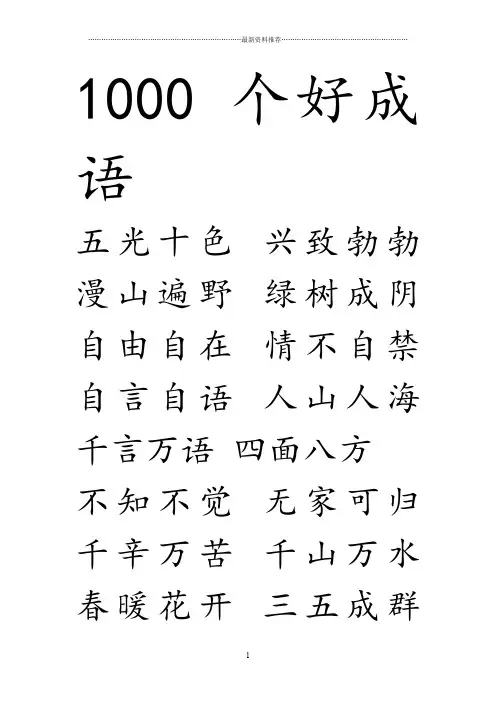 最新资料推荐
1000 个好成
语
五光十色 兴致勃勃
漫山遍野 绿树成阴
自由自在 情不自禁
自言自语 人山人海
千言万语 四面八方
不知不觉 无家可归
千辛万苦 千山万水
春暖花开 三五成群
1